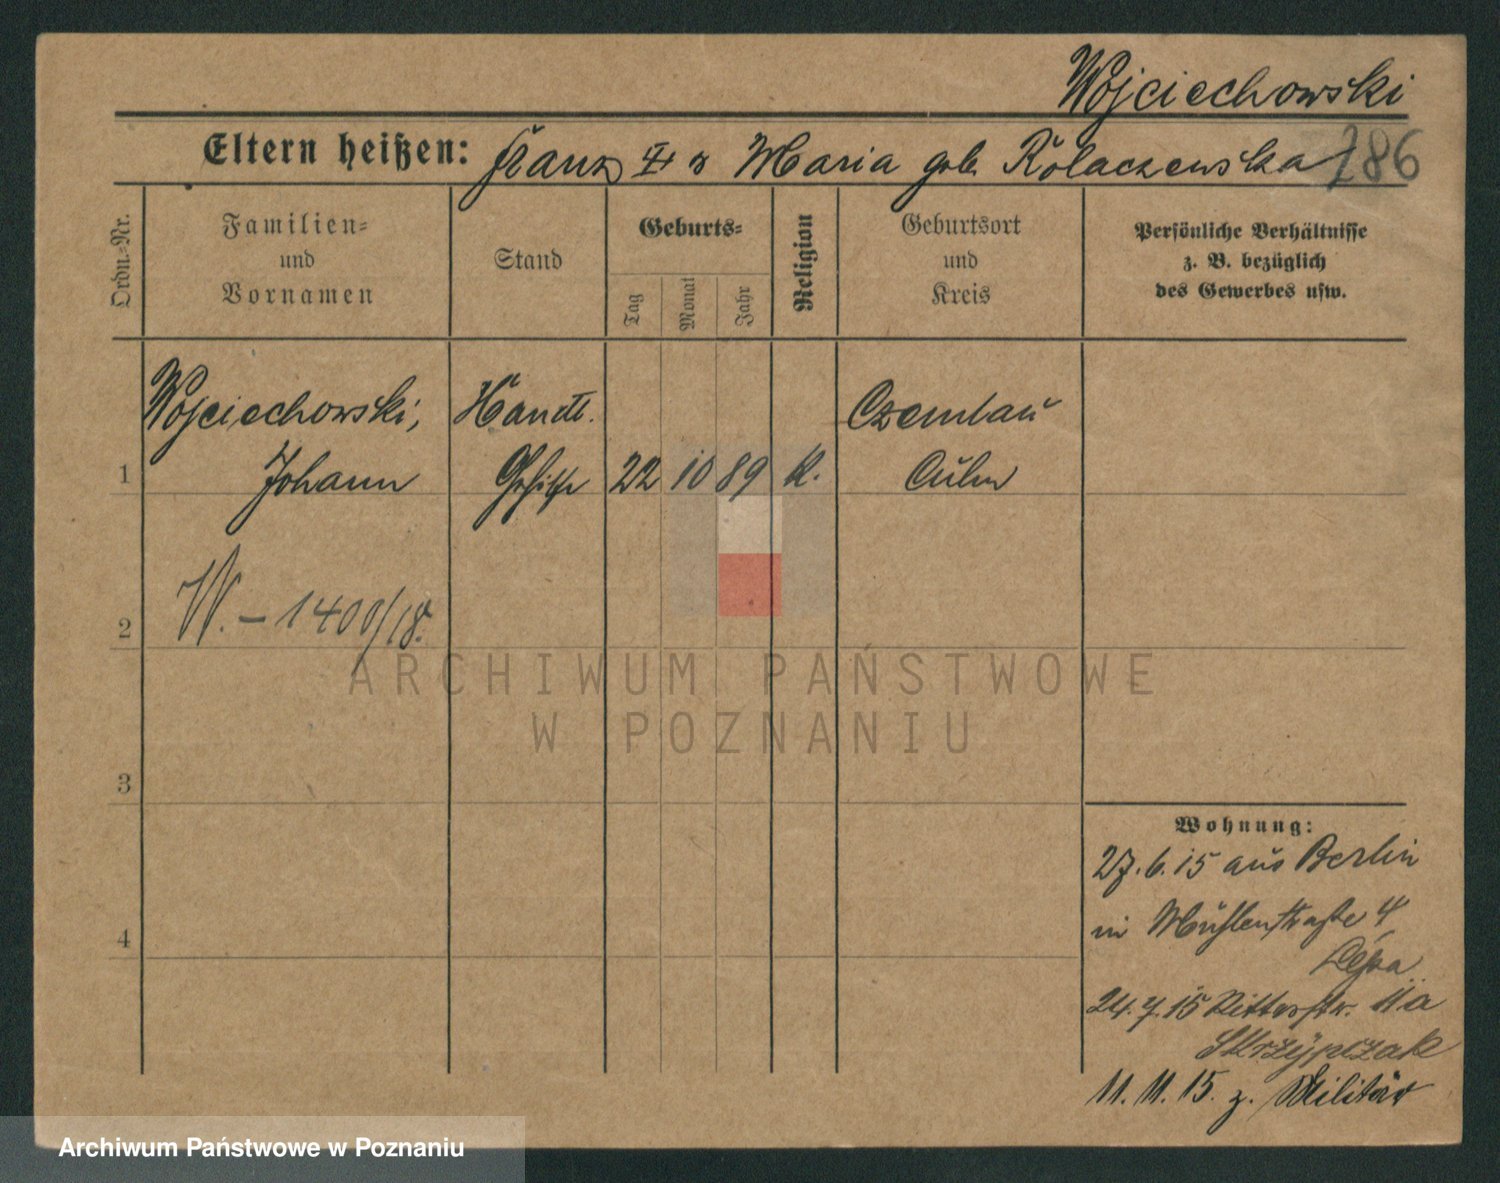 Wojciechowski
Eltern heißen: Franz † u Maria geb. Kolaczewska
286
Ordn.-Nr.
Familien-
und
Vornamen
Stand
Geburts-
Tag
Monat
Jahr
Religion
Geburtsort
und
Kreis
Persönliche Verhältnisse
z. B. bezüglich
des Gewerbes usw.
Wojciechowski, Handl. Czemlau
1 Johann Gehilfe 22 10 89 K. Culm
2 W. - 1400/18.
3
4
Wohnung:
27.6.15 aus Berlin
in Mühlenstraße 4
24.7.15 Ritterstr. 11a
Skrzypczak
11.11.15. z. Militär
ARCHIWUM PAŃSTWOWE
W POZNANIU
Archiwum Państwowe w Poznaniu